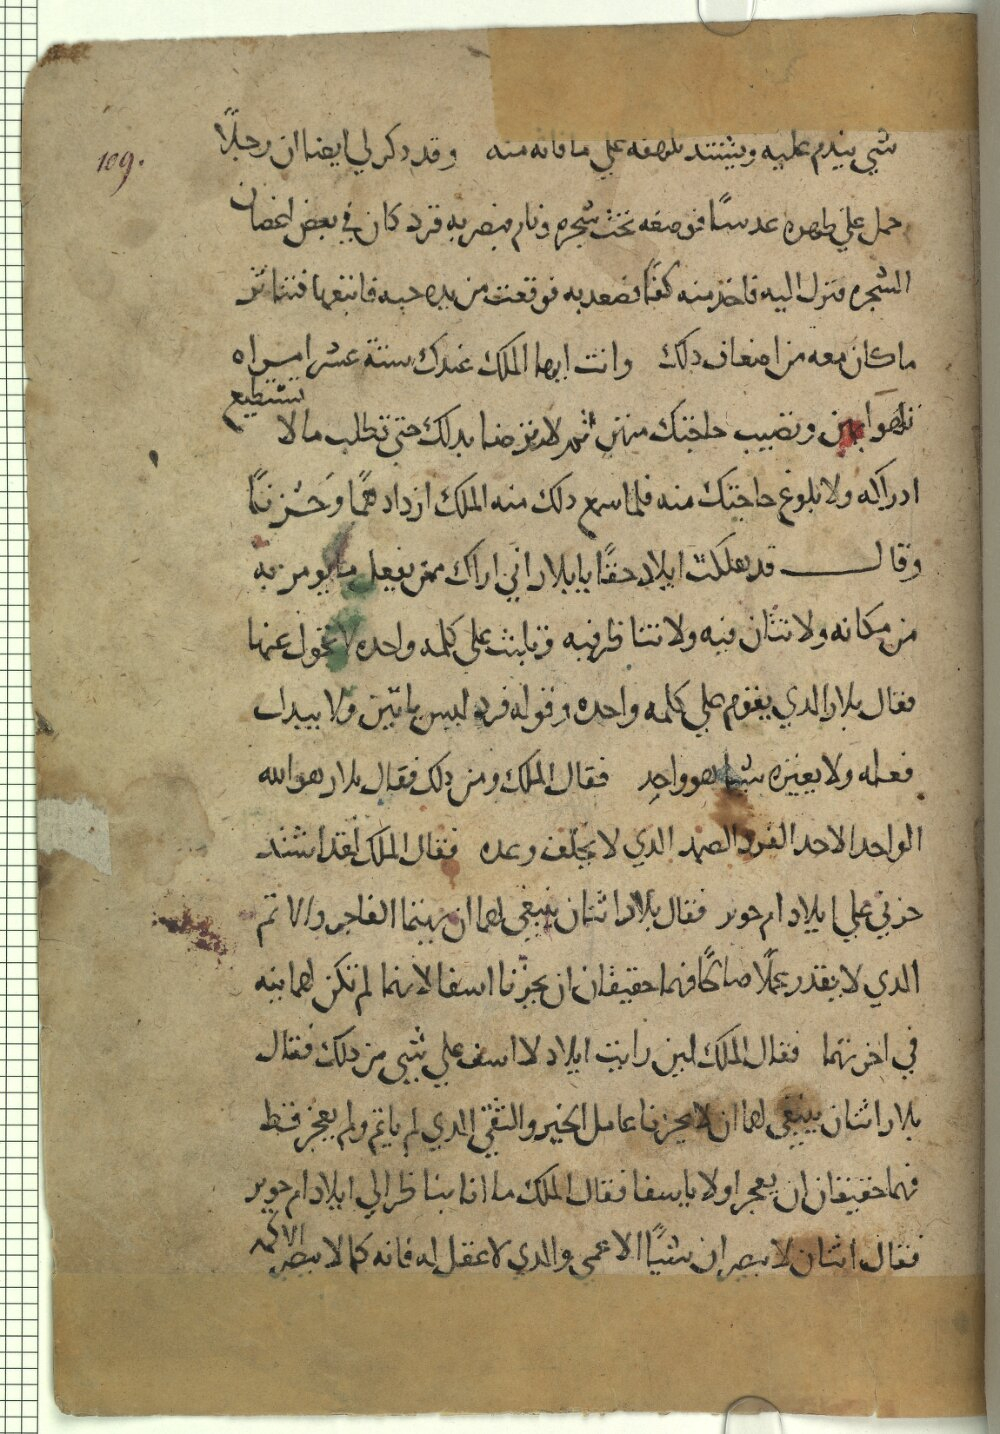 109.
شي يندم عليه ويشتد تلهفه علي ما فاته منه وقد ذكر لي ايضا ان رجلًا
حمل علي ظهره عدسًا فوضعه تحت شجره ونام فبصر به قرد كان في بعض اغصان
الشجره فنزل اليه فاخذ منه كفًا فصعد به فوقعت من يده حبه فاتبعها فتناثر
ما كان معه من اضعاف ذلك وانت ايها الملك عندك ستة عشر امراه
تلهوا بهن وتصيب حاجتك منهن ثم لا ترضا بذلك حتي تطلب مالا تستطيع
ادراكه ولا بلوغ حاجتك منه فلما سمع ذلك منه الملك ازداد همًا وَحَزنًا
وقال قد هلكت ايلاد حقًا يا بلار اني اراك ممن يفعل ما يومر به
من مكانه ولا تتان فيه ولا تتناظر فيه وتلبث علي كلمه واحده لا تحول عنها
فقال بلار الذي يقوم علي كلمه واحده وقوله فرد ليس باثنين ولا يبدل
فعله ولا يغيره شيا هو واحد فقال الملك ومن ذلك فقال بلار هو الله
الواحد الاحد الفرد الصمد الذي لا يخلف وعده فقال الملك لقد اشتد
حزني علي ايلاد ام جوبر فقال بلار اثنان ينبغي لهما ان يهتما الفاجر والاثم
الذي لا يقدر يعملًا صالحًا فهما حقيقان ان يحزنا اسفا لانهما لم تكن لهما نيه
في اخرتهما فقال الملك لين رايت ايلاد لا اسف علي شي من ذلك فقال
بلار اثنان ينبغي لهما ان لا يحزنا عامل الخير والتقي الذي لم ياثم ولم يعجز قط
فهما حقيقان ان يعجرا ولا ياسفا فقال الملك ما انا بناظر الي ايلاد ام جوبر
فقال اثنان لا يبصران شيًا الاعمي والذي لا عقل له فانه كما لا يبصر الاكمه